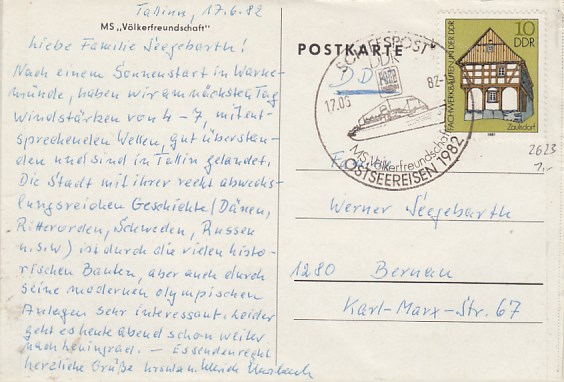 Tallinn, 17.6.82
MS „Völkerfreundschaft"
Liebe Familie Seegebarth!
Nach einem Sonnenstart in Warne-
münde, haben wir am nächsten Tag
windstärken von 4-7, mit ent-
sprechenden Wellen, gut überstan-
den und sind in Tallin gelandet.
Die Stadt mit ihrer recht abwechs-
lungsreichen Geschichte (Dänen,
Ritterorden, Schweden, Russen
u.s.w) ist durch die vielen histo-
rischen Bauten, aber auch durch
seine modernen olympischen
Anlagen sehr interessant. Leider
geht es heute abend schon weiter
nach Leningrad. — Essen den recht
herzliche Grüße
POSTKARTE
SCHIFFSPOST
DDR
17.06
82-
MS Völkerfreundschaft
OSTSEEREISEN 1982
10
DDR
FACHWERKBAUTEN IN DER DDR
Zaulsdorf
1981
2623
1,-
DDR
Werner Seegebarth
1280 Bernau
Karl-Marx-Str. 67